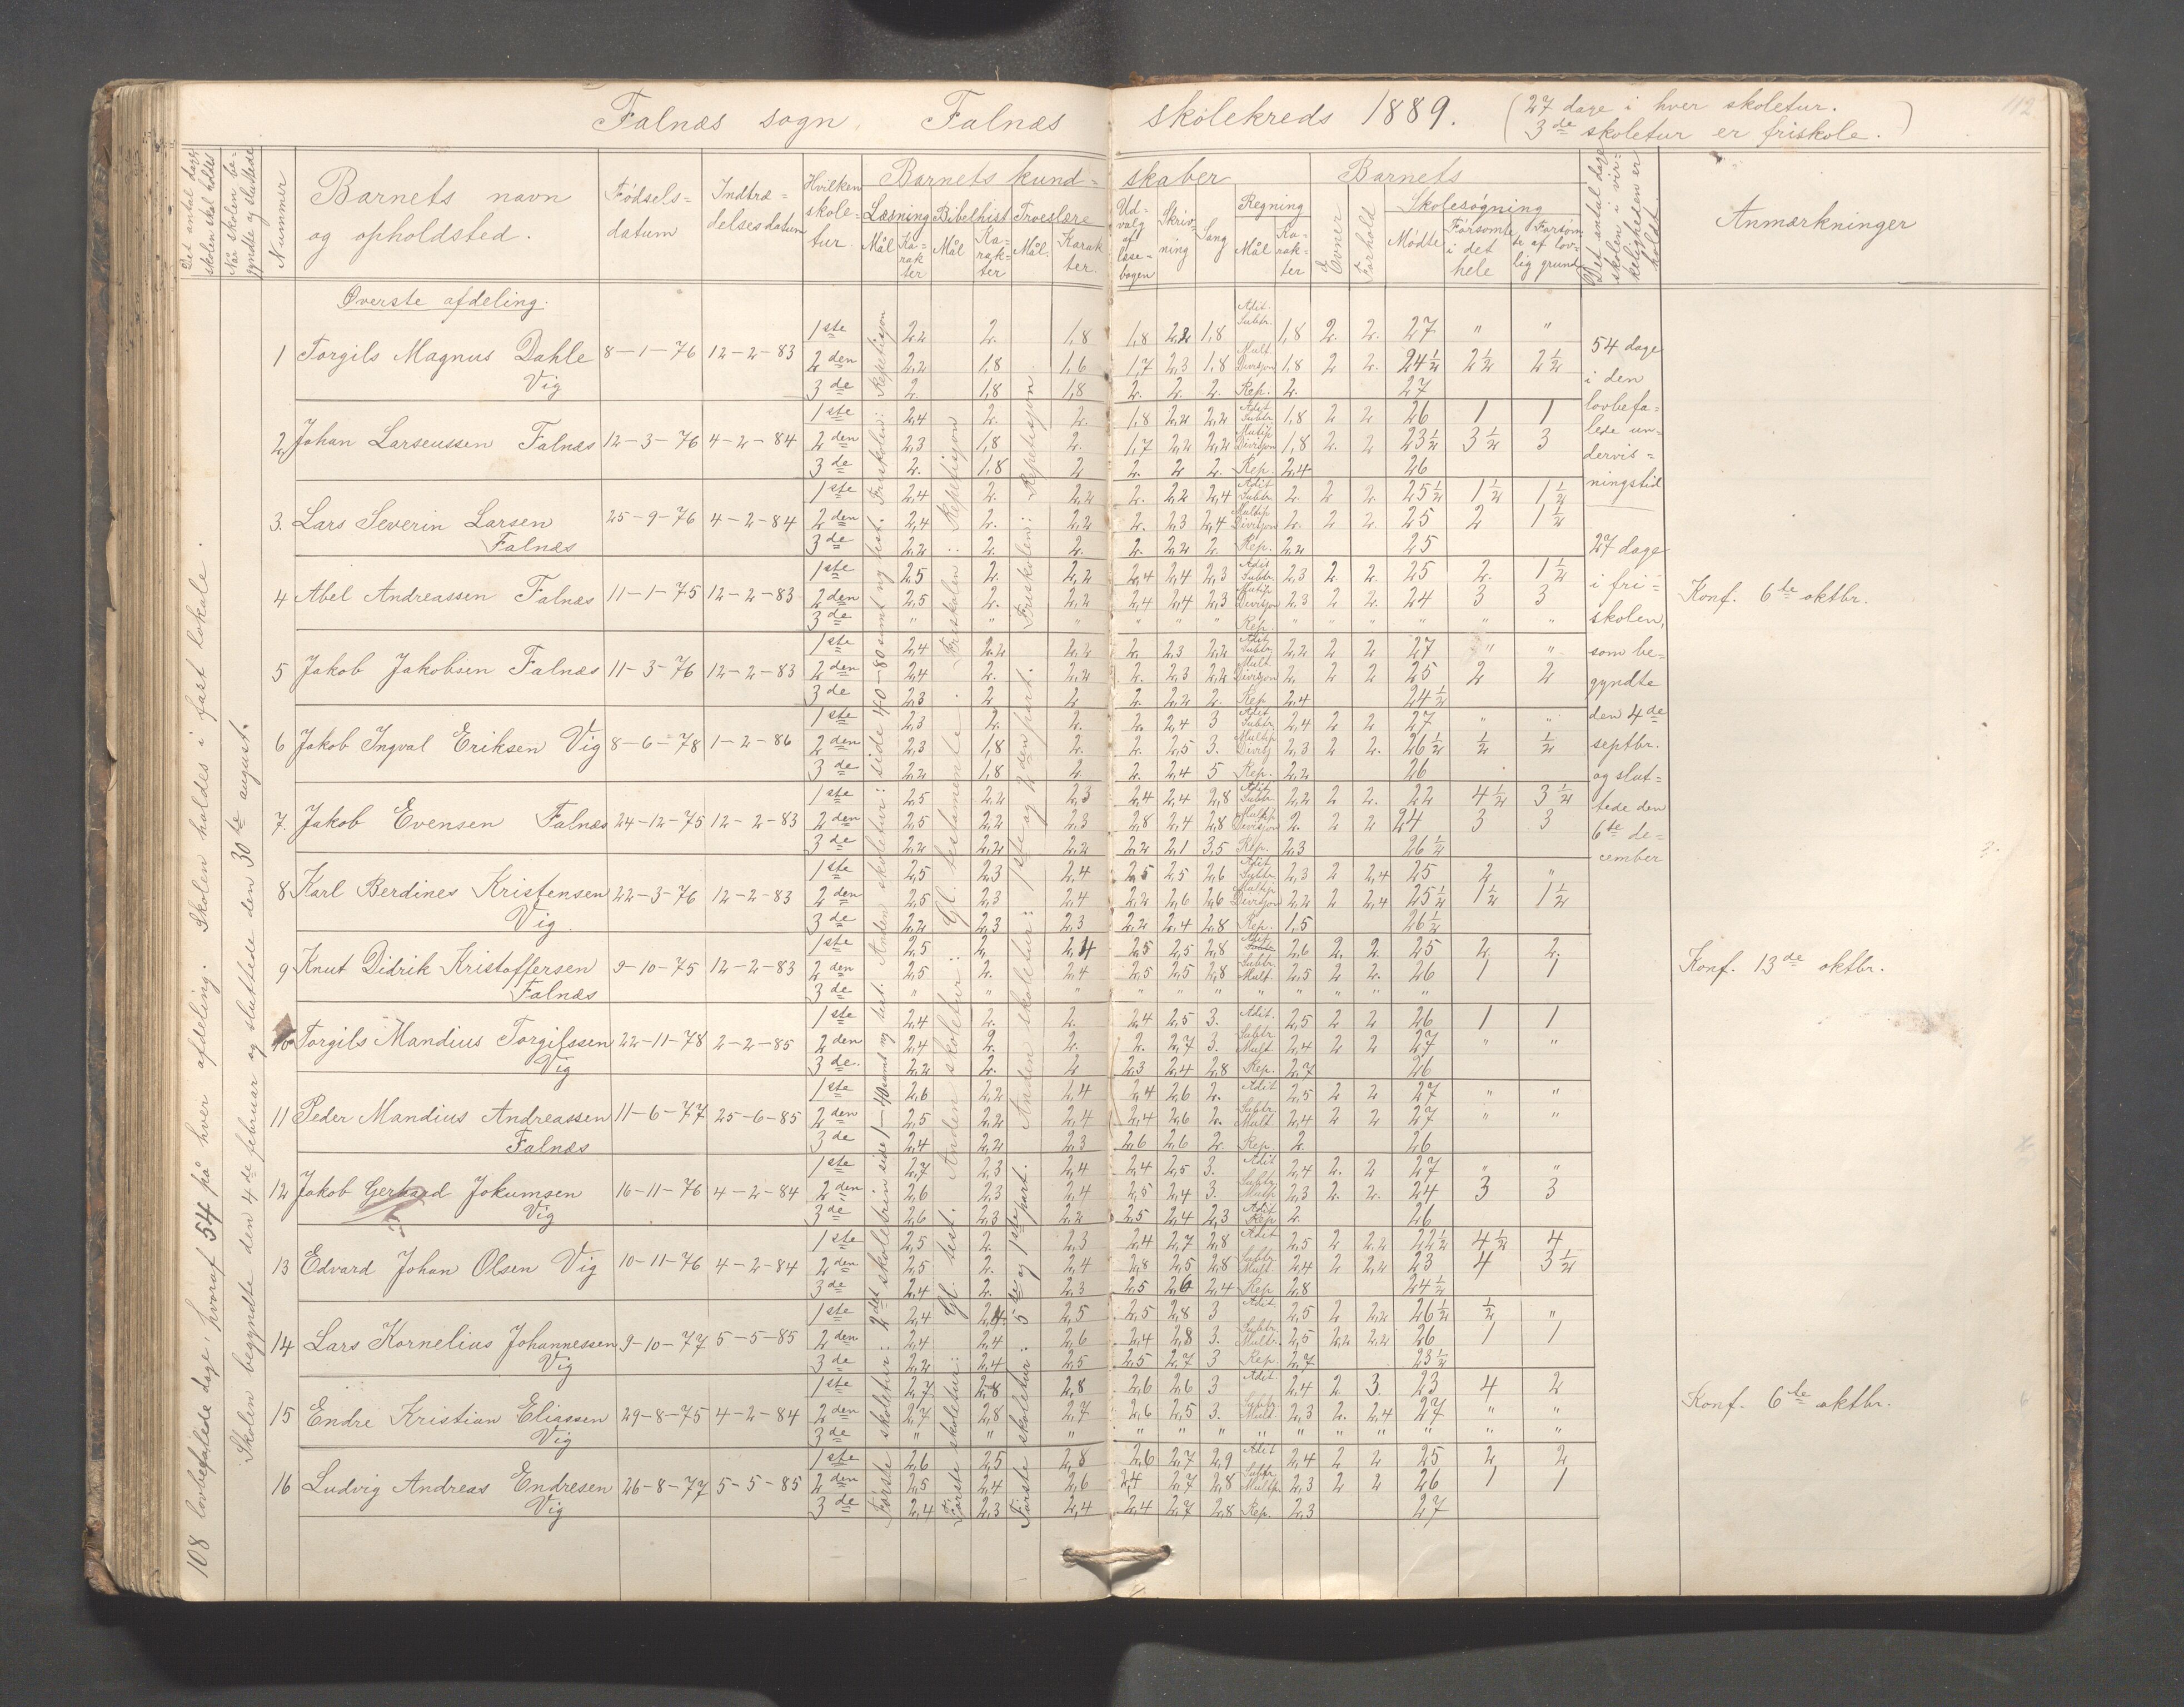 Falnæs sogn. Falnæs skolekreds 1889. (27 dage i hver skoletur.
3de skoletur er friskole.)
112
Det antal dage skolen skal holdes
Når skolen begyndte og sluttede
Nummer
Barnets navn og opholdsted.
Fødselsdatum
Indtrædelsesdatum
Hvilken skoletur.
Barnets kundskaber
Læsning Mål Karakter
Bibelhist. Mål Karakter
Troeslære Mål. Karakter.
Udvalg af læsebogen
Skrivning
Sang
Regning Mål Karakter
Barnets
Evner
Forhold
Skolesøgning
Mødte
Forsømte i det hele
Forsømte af lovlig grund
Det antal dage skolen i virkeligheden er holdt.
Anmærkninger
108 lovbefalede dage, hvoraf 54 på hver afdeling. Skolen holdes i fast lokale.
Skolen begyndte den 4de februar og sluttede den 30te august.
Første skoletur: 2det skoletrin side 1–40 samt ny test. Anden skoletur: side 40–80 samt ny test. Friskolen: Repetisjon
Første skoletur: Gl. test. Anden skoletur: Gl. testamente. Friskolen Repetisjon
Første skoletur: 5te og 1ste part. Anden skoletur: 1ste og 2den part. Friskolen: Repetisjon
Øverste afdeling.
1 Torgils Magnus Dahle Vig 8–1–76 12–2–83
1ste 2,2 2. 1,8 1,8 2,2 1,8 Adit. Subtr. 1,8 2. 2. 27 " "
2den 2,2 1,8 1,6 1,7 2,3 1,8 Mult Divisjon 1,8 2 2. 24½ 2½ 2½
3de 2. 1,8 1,8 2. 2. 2. Rep. 2. 27
2 Johan Larseussen Falnæs 12–3–76 4–2–84
1ste 2,4 2. 2. 1,8 2,2 2,2 Adit Subtr 1,8 2 2 26 1 1
2den 2,3 1,8 2. 1,7 2,2 2,2 Multip Divisjon 1,8 2. 2 23½ 3½ 3
3de 2. 1,8 2 2. 2 2. Rep. 2,4 26
3. Lars Severin Larsen Falnæs 25–9–76 4–2–84
1ste 2,4 2. 2,2 2. 2,2 2,4 Adit Subtr. 2. 2 2. 25½ 1½ 1½
2den 2,4 2. 2,2 2. 2,3 2,4 Multip Divisjon 2. 2 2. 25 2 1½
3de 2,2 2. 2. 2. 2,2 2. Rep. 2,2 25
4 Abel Andreassen Falnæs 11–1–75 12–2–83
1ste 2,5 2. 2,2 2,4 2,4 2,3 Adit Subtr. 2,3 2. 2. 25 2. 1½
2den 2,5 2. 2,2 2,4 2,4 2,3 Multip Divisjon 2,3 2 2. 24 3 3
3de " " " " " " Rep. " " " " " "
Konf. 6te oktbr.
5 Jakob Jakobsen Falnæs 11–3–76 12–2–83
1ste 2,4 2,2 2,2 2. 2,3 2,2 Adit Subtr 2,2 2 2 27 " "
2den 2,4 2. 2,2 2. 2,3 2,2 Mult Divisjon 2. 2 2 25 2 2
3de 2,3 2 2 2. 2,2 2. Rep 2,4 24½
6 Jakob Ingval Eriksen Vig 8–6–78 1–2–86
1ste 2,3 2. 2. 2. 2,4 3 Adit Subtr. 2,4 2 2 27 " "
2den 2,3 1,8 2. 2. 2,5 3. Multip Divisj 2,3 2 2. 26½ ½ ½
3de 2,2 1,8 2. 2. 2,4 5 Rep. 2,2 26
7. Jakob Evensen Falnæs 24–12–75 12–2–83
1ste 2,5 2,2 2,3 2,4 2,4 2,8 Adit Subtr. 2,2 2 2. 22 4½ 3½
2den 2,5 2,2 2,3 2,8 2,4 2,8 Multip Divisjon 2. 2 2 24 3 3
3de 2,2 2,2 2,2 2,2 2,1 3,5 Rep. 2,3 26½
8 Karl Berdines Kristensen Vig 22–3–76 12–2–83
1ste 2,5 2,3 2,4 2,5 2,5 2,6 Adit Subtr 2,3 2 2,4 25 2 "
2den 2,5 2,3 2,4 2,2 2,6 2,6 Multip Divisjon 2,2 2 2,4 25½ 1½ 1½
3de 2,2 2,3 2,3 2,2 2,4 2,8 Rep. 1,5 26½
9 Knut Didrik Kristoffersen Falnæs 9–10–75 12–2–83
1ste 2,5 2. 2,4 2,5 2,5 2,8 Adit 2,6 2. 2. 25 2. 2.
2den 2,5 2. 2,4 2,5 2,5 2,8 Subtr. Mult 2,5 2 2. 26 1 1
3de " " " " " " " " " " "
Konf. 13de oktbr.
10 Torgils Mandius Torgilssen Vig 22–11–78 2–2–85
1ste 2,4 2. 2. 2,4 2,5 3. Adit. 2,5 2 2 26 1 1
2den 2,4 2. 2. 2. 2,7 3. Subtr Mult 2,4 2 2 27 " "
3de. 2,2 2. 2 2,3 2,4 2,8 Rep. 2,7 26
11 Peder Mandius Andreassen Falnæs 11–6–77 25–6–85
1ste 2,6 2,2 2,4 2,4 2,6 2. Adit 2,5 2 2 27 " "
2den 2,5 2,2 2,4 2,4 2,6 2. Subtr Mult. 2,4 2 2 27 " "
3de 2,4 2,2 2,3 2,6 2,6 2. Rep. 2. 26
12 Jakob Gerhard Jokumsen Vig 16–11–76 4–2–84
1ste 2,7 2,3 2,4 2,4 2,5 3. Adit 2,4 2. 2 27 " "
2den 2,6 2,3 2,4 2,5 2,4 3. Subtr Multp 2,3 2. 2. 24 3 3
3de 2,6 2,3 2,2 2,5 2,4 2,3 Rep 2. 26
13 Edvard Johan Olsen Vig 10–11–76 4–2–84
1ste 2,5 2. 2,3 2,4 2,7 2,8 Adit 2,5 2 2,2 22½ 4½ 4
2den 2,5 2. 2,4 2,8 2,5 2,8 Subtr Mult. 2,4 2 2,2 23 4 3½
3de 2,4 2. 2,3 2,5 2,6 2,4 Rep 2,8 24½
14 Lars Kornelius Johannessen Vig 9–10–77 5–5–85
1ste 2,4 2,4 2,5 2,5 2,8 3 Adit. 2,5 2 2,2 26½ ½ "
2den 2,4 2,4 2,6 2,4 2,8 3. Subtr Multr. 2,5 2,2 2,2 26 1 1
3de 2,2 2,4 2,5 2,5 2,7 3 Rep. 2,7 23½
15 Endre Kristian Eliassen Vig 29–8–75 4–2–84
1ste 2,7 2,8 2,8 2,6 2,6 3 Adit 2,4 2 3. 23 4 2
2den 2,7 2,8 2,7 2,6 2,5 3. Subtr Mult. 2,3 2. 2,4 27 " "
3de " " " " " " " " " " " " "
Konf. 6te oktbr.
16 Ludvig Andreas Endresen Vig 26–8–77 5–5–85
1ste 2,6 2,5 2,8 2,6 2,7 2,9 Adit 2,4 2 2 25 2 2
2den 2,5 2,4 2,6 2,4 2,7 2,8 Subtr Multp. 2,3 2 2 26 1 1
3de 2,4 2,3 2,4 2,4 2,7 2,8 Rep. 2,3 27
54 dage
i den
lovbefa=
lede un=
dervis=
ningstid
27 dage
i fri=
skolen,
som be=
gyndte
den 4de
septbr.
og slut=
tede den
6te de=
cember